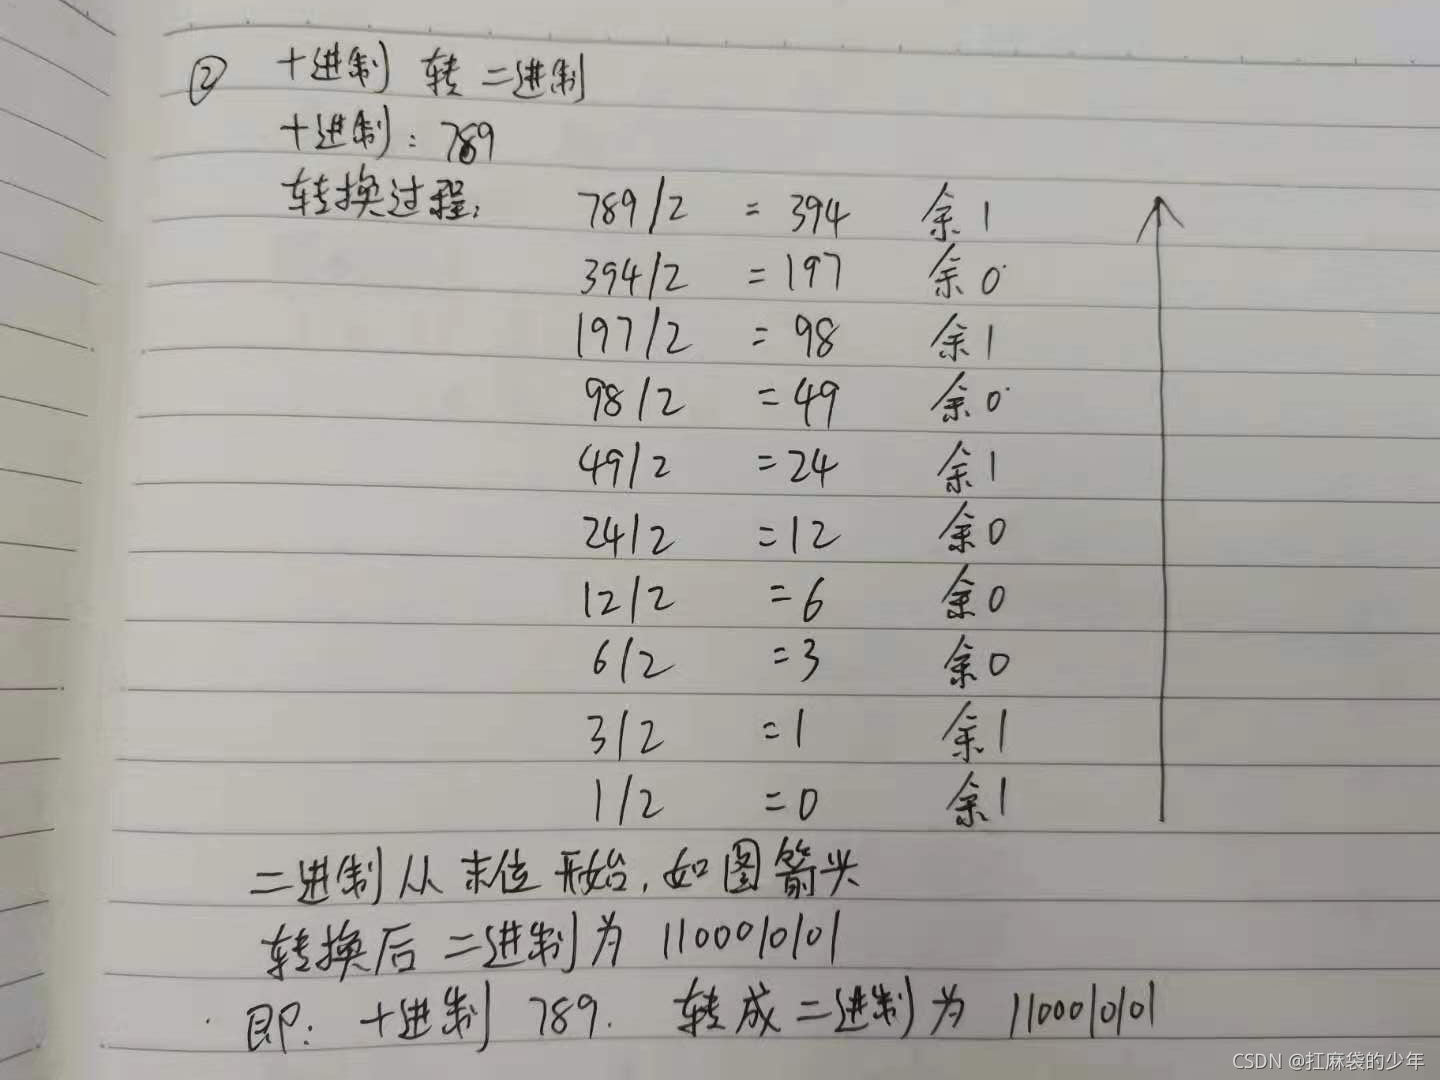 ② 十进制 转 二进制
十进制: 789
转换过程: 789/2 = 394 余1
394/2 = 197 余0
197/2 = 98 余1
98/2 = 49 余0
49/2 = 24 余1
24/2 = 12 余0
12/2 = 6 余0
6/2 = 3 余0
3/2 = 1 余1
1/2 = 0 余1
二进制从末位开始,如图箭头
转换后二进制为 1100010101
即: 十进制 789. 转成二进制为 1100010101
CSDN @扛麻袋的少年